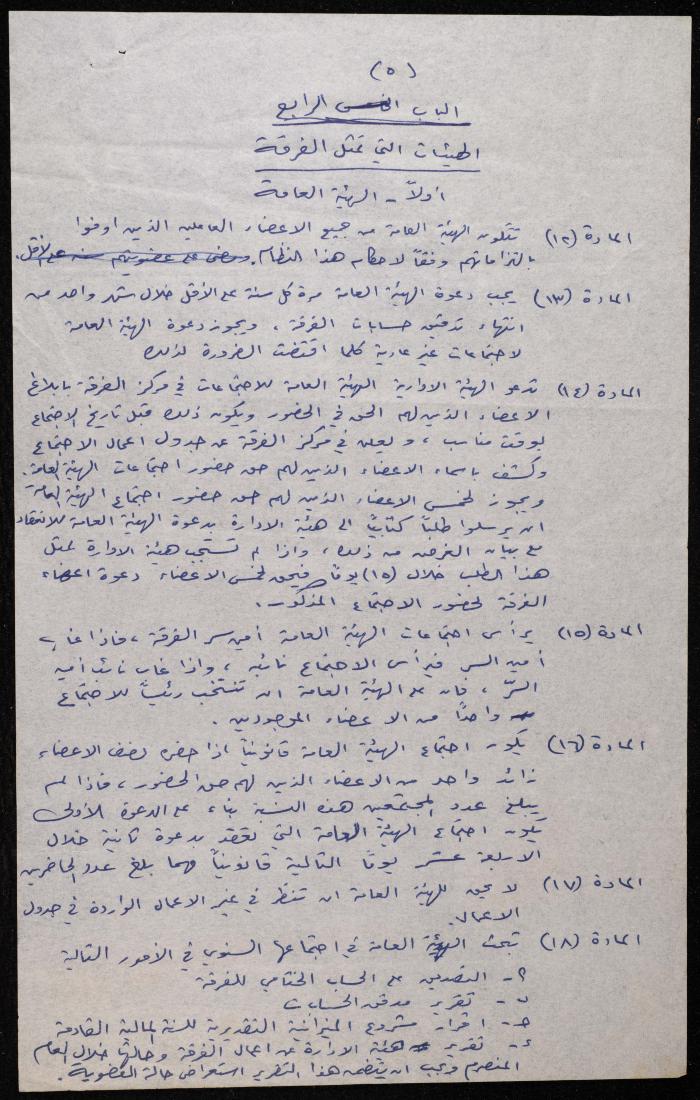 (٥)
الباب الرابع
الهيئات التي تمثل الفرقة
أولاً - الهيئة العامة
المادة (١٢) تتكون الهيئة العامة من جميع الاعضاء العاملين الذين اوفوا
بالتزاماتهم وفقاً لاحكام هذا النظام. ومضى على عضويتهم سنة على الأقل.
المادة (١٣) يجب دعوة الهيئة العامة مرة كل سنة على الأقل خلال شهر واحد من
انتهاء تدقيق حسابات الفرقة، ويجوز دعوة الهيئة العامة
لاجتماعات غير عادية كلما اقتضت الضرورة لذلك
المادة (١٤) تدعو الهيئة الادارية الهيئة العامة للاجتماعات في مركز الفرقة بابلاغ
الاعضاء الذين لهم الحق في الحضور ويكون ذلك قبل تاريخ الاجتماع
بوقت مناسب، ويعلن في مركز الفرقة عن جدول اعمال الاجتماع
وكشف باسماء الاعضاء الذين لهم حق حضور اجتماعات الهيئة العامة.
ويجوز لخمس الاعضاء الذين لهم حق حضور اجتماع الهيئة العامة
ان يرسلوا طلباً كتابياً الى هيئة الادارة بدعوة الهيئة العامة للانعقاد
مع بيان الغرض من ذلك، واذا لم تستجب هيئة الادارة لمثل
هذا الطلب خلال (١٥) يوماً فيحق لخمس الاعضاء دعوة اعضاء
الفرقة لحضور الاجتماع المذكور.
المادة (١٥) يرأس اجتماعات الهيئة العامة أمين سر الفرقة، فاذا غاب
أمين السر فيرأس الاجتماع نائبه، واذا غاب نائب أمين
السرّ، فان على الهيئة العامة ان تنتخب رئيساً للاجتماع
واحداً من الاعضاء الموجودين.
المادة (١٦) يكون اجتماع الهيئة العامة قانونياً اذا حضره نصف الاعضاء
زائد واحد من الاعضاء الذين لهم حق الحضور، فاذا لم
يبلغ عدد المجتمعين هذه النسبة بناء على الدعوة الأولى
يكون اجتماع الهيئة العامة التي تعقد بدعوة ثانية خلال
الاربعة عشر يوماً التالية قانونياً مهما بلغ عدد الحاضرين
المادة (١٧) لا يحق للهيئة العامة ان تنظر في غير الاعمال الواردة في جدول
الاعمال.
المادة (١٨) تبحث الهيئة العامة في اجتماعها السنوي في الأمور التالية
أ- التصديق على الحساب الختامي للفرقة
ب- تقرير مدقق الحسابات
جـ- اقرار مشروع الميزانية التقديرية للسنة المالية القادمة
د- تقرير هيئة الادارة عن اعمال الفرقة وحالتها خلال العام
المنصرم ويجب ان يتضمن هذا التقرير استعراض حالة العضوية.